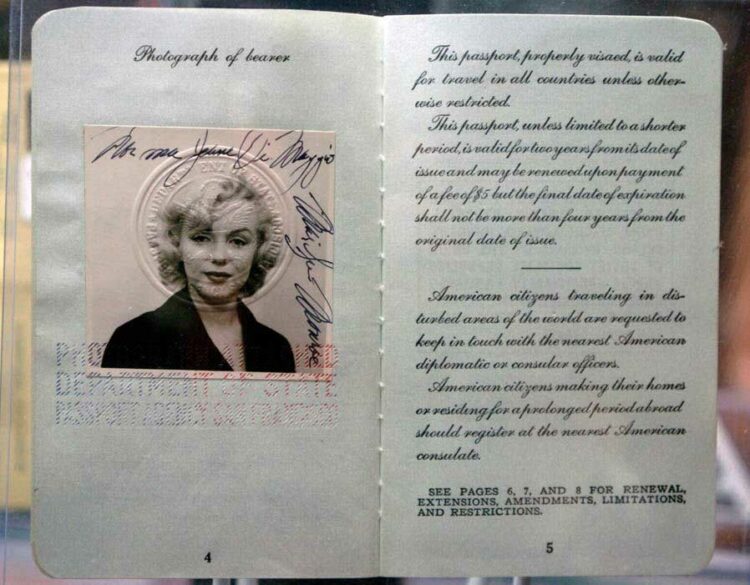 Photograph of bearer
Norma Jeane Di Maggio
Marilyn Monroe
DEPARTMENT OF STATE
4
This passport, properly visaed, is valid
for travel in all countries unless other-
wise restricted.
This passport, unless limited to a shorter
period, is valid for two years from its date of
issue and may be renewed upon payment
of a fee of $5 but the final date of expiration
shall not be more than four years from the
original date of issue.
American citizens traveling in dis-
turbed areas of the world are requested to
keep in touch with the nearest American
diplomatic or consular officers.
American citizens making their homes
or residing for a prolonged period abroad
should register at the nearest American
consulate.
SEE PAGES 6, 7, AND 8 FOR RENEWAL,
EXTENSIONS, AMENDMENTS, LIMITATIONS,
AND RESTRICTIONS.
5